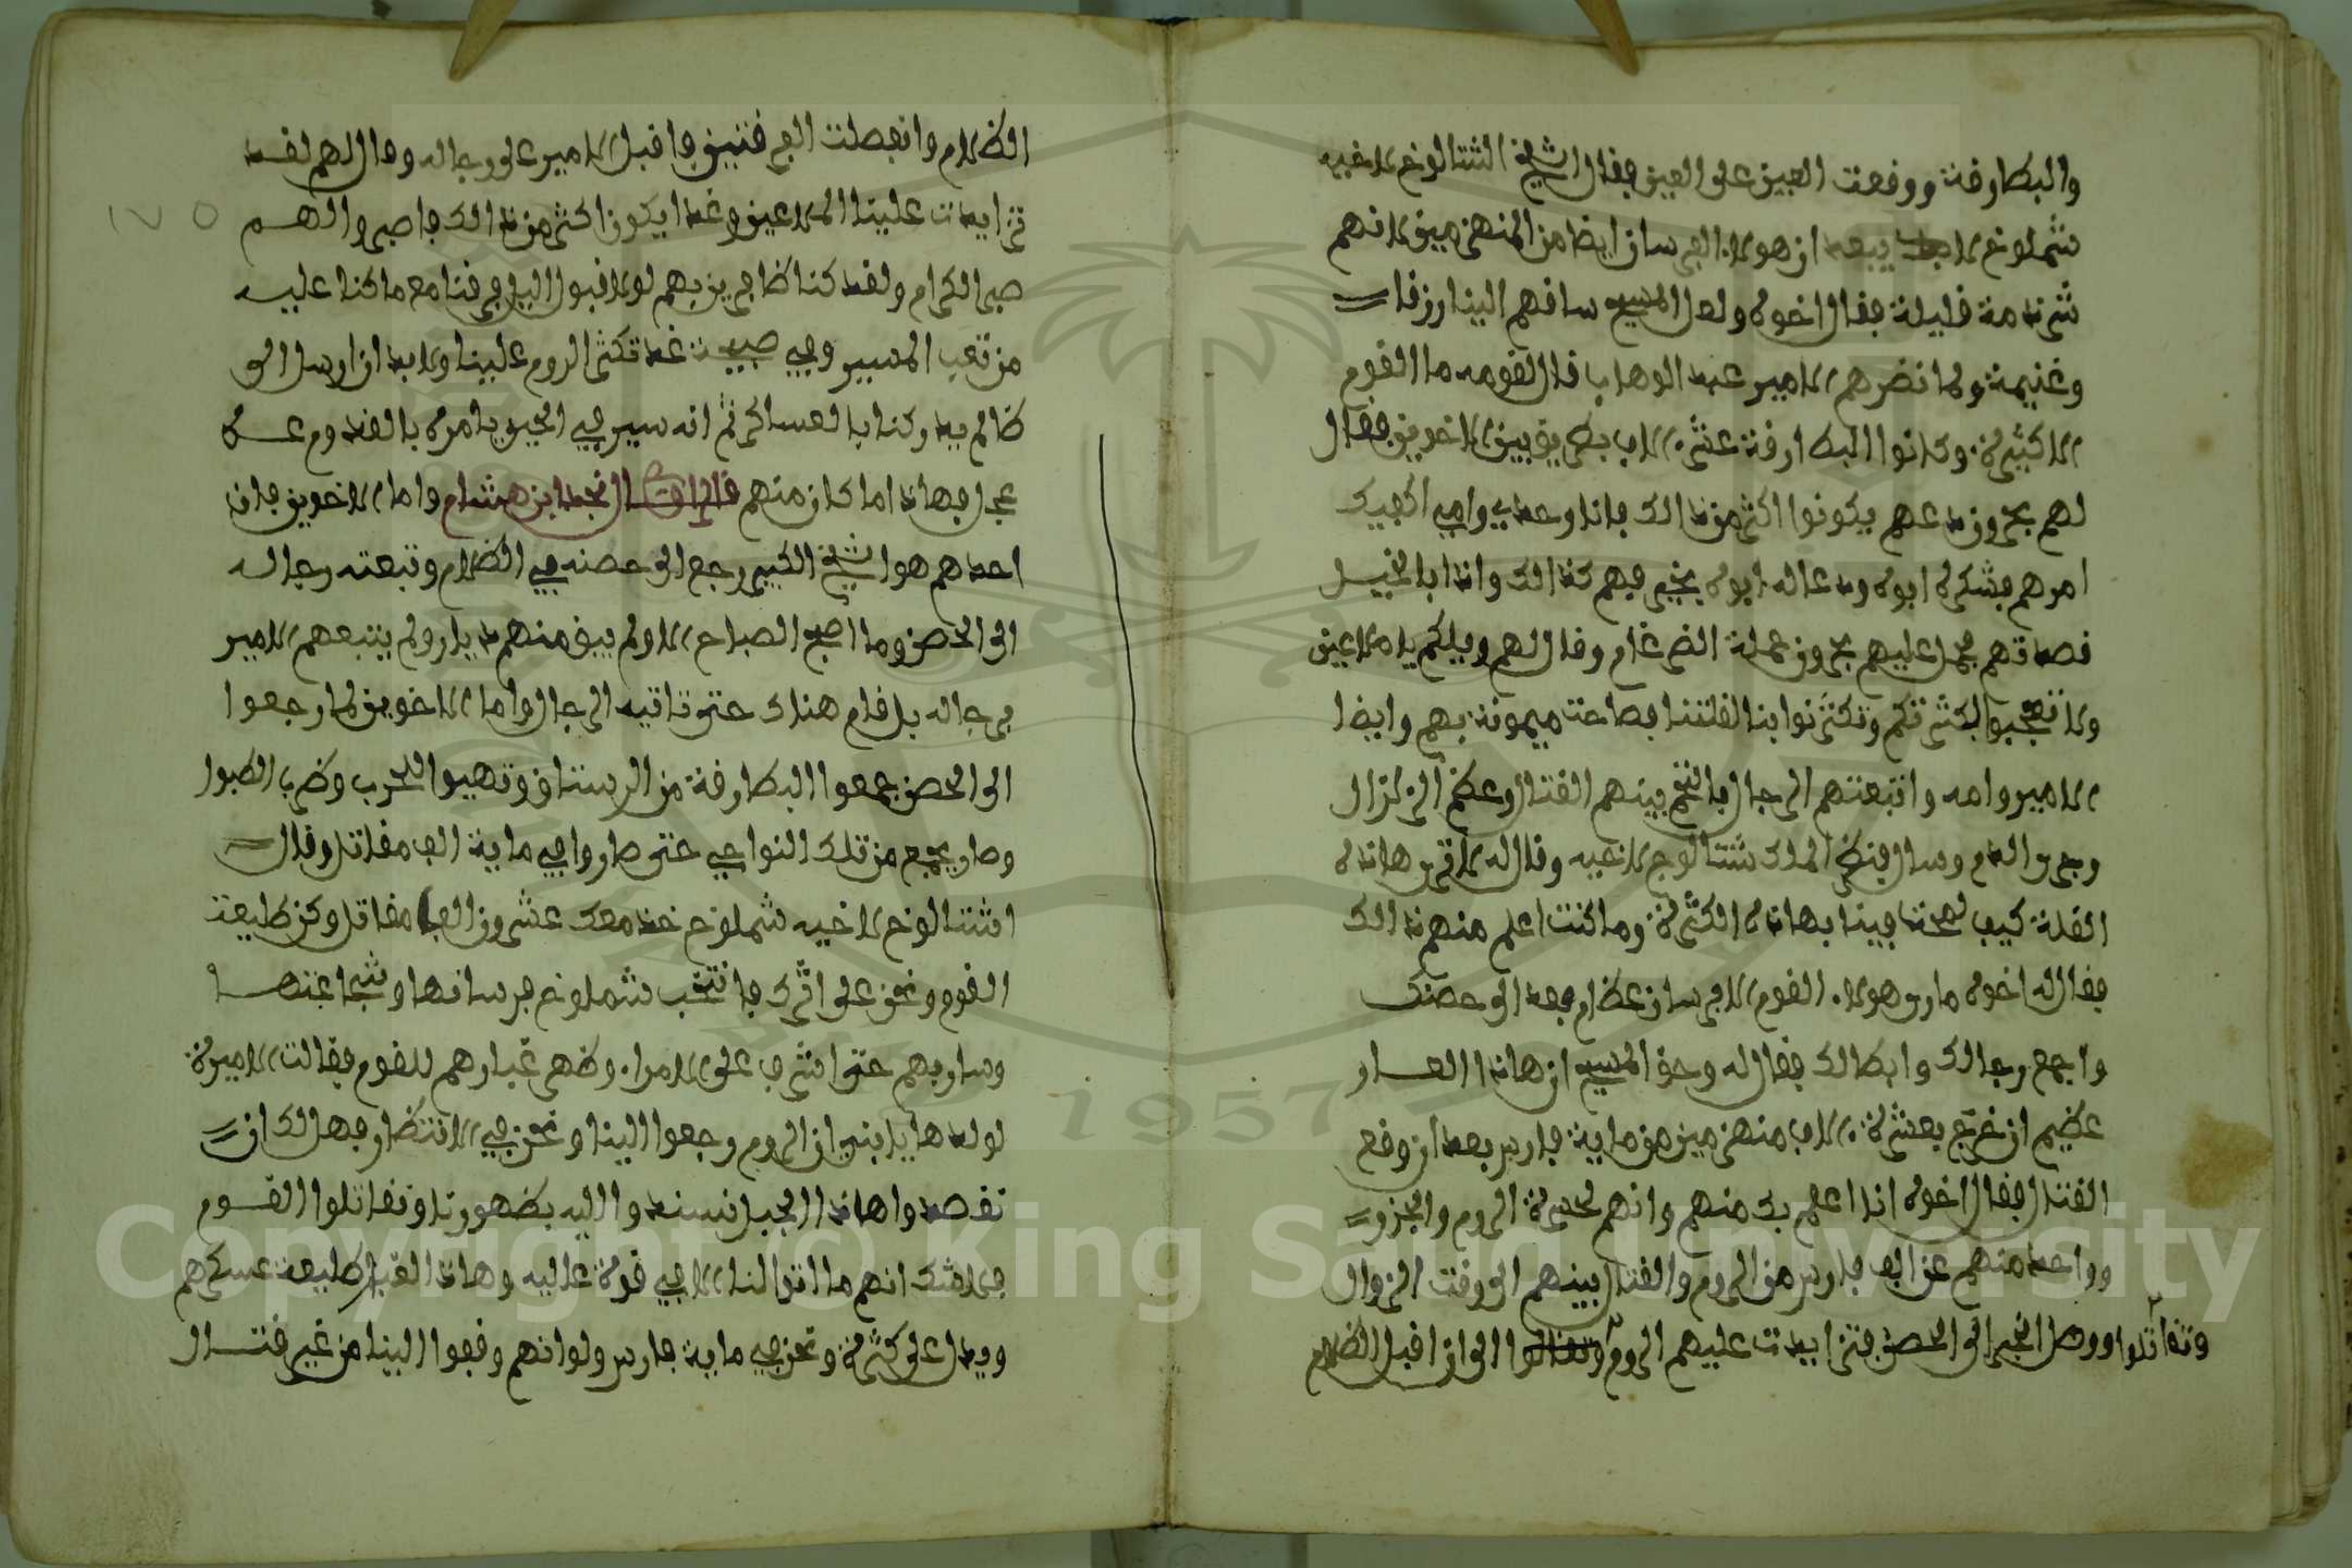 والبطارقة ووقعت العين على العين فقال الشيخ اشتالوخ لاخيه
شملوخ لا يبعد ان هولاء الفرسان ايضا من المنهزمين لانهم
شرذمة قليلة فقال اخوه ولعل المسيح ساقهم الينا رزقا
وغنيمة ولما نضرهم الامير عبد الوهاب قال لقومه ما القوم
الا كثيرة وكانوا البطارقة عشرة الاف بطريق بين الاخوين فقال
لهم بحرون دعهم يكونوا اكثر من ذالك فانا وحدي وامي اكفيك
امرهم فشكره ابوه ودعا له ابوه بخير فبهم كذالك واذا بالخيل
قصدتهم فحمل عليهم بحرون حملة الضرغام وقال لهم ويلكم يا ملاعين
ولا تعجبوا لكثرتكم وتكترثوا بنا لقلتنا فصاحت ميمونة بهم وايضا
الامير وامه واتبعتهم الرجال فالتحم بينهم القتال وعظم الزلزال
وجرى الدم وسال فنظر الملك شتالوخ لاخيه وقال له لا ترى هاذه
القلة كيف لعبت فينا بهاذه الكثرة وما كنت اعلم منهم ذالك
فقال له اخوه مارس هولاء القوم الا فرسان عظام فعد الى حصنك
واجمع رجالك وابطالك فقال له وحق المسيح ان هاذا العار
عظيم ان نرجع بعشرة الاف منهزمين من ماية فارس بعد ان وقع
القتال فقال اخوه انا اعلم بك منهم وانهم لحسرة الروم والجزر
وواحد منهم عن الف فارس من الروم والقتال بينهم الى وقت الزوال
وتقاتلوا ووصل الخبر الى الحصن فتزايدت عليهم الروم الى ان اقبل الظلام
الظلام وانفصلت الفرقتين واقبل الامير على رجاله وقال لهم لقد
تزايدت علينا الملاعين وغدا يكون اكثر من ذالك فاصبروا لهم
صبر الكرام ولقد كنا ظافرين بهم لولا قبول الليل فرقنا مع ما كنا عليه
من تعب المسير وفي صبيحت غد تكثر الروم علينا ولا بد ان ارسل الى
ظالم يدركنا بالعساكر ثم انه سير في الحين يامره بالقدوم على
عجل فهاذا ما كان منهم قال الراوي النجد ابن هشام واما الاخوين فان
احدهم هو الشيخ الكبير رجع الى حصنه في الظلام وتبعته رجاله
الى الحصن وما اصبح الصباح الا ولم يبق منهم ديار ولم يتبعهم الامير
برجاله بل قام هناك حتى تاتيه الرجال واما الاخوين لما رجعوا
الى الحصن جمعوا البطارقة من الرستاق وتهيوا للحرب وضرب الطبول
وصار يجمع من تلك النواحي حتى صاروا في ماية الف مقاتل وقال
اشتالوخ لاخيه شملوخ خذ معك عشرون الفا مقاتل وكن طليعت
القوم ونحن على اثرك فانتخب شملوخ فرسانها وشجاعتها
وسار بهم حتى اشرف على الامراء وظهر غبارهم للقوم فقالت الاميرة
لولدها يا بني ان الروم رجعوا الينا ونحن في الانتظار فهل لك ان
تقصدوا هاذا الجبل نسندوا اليه بظهورنا وتقاتلوا القوم
فلا شك انهم ما اتوا لنا الا في قوة عاليه وهاذا القبل طليعة عسكرهم
ويدل على كثرة ونحن في ماية فارس ولو انهم وقعوا الينا من غير قتال
١٧٥
Copyright © King Saud University
1957